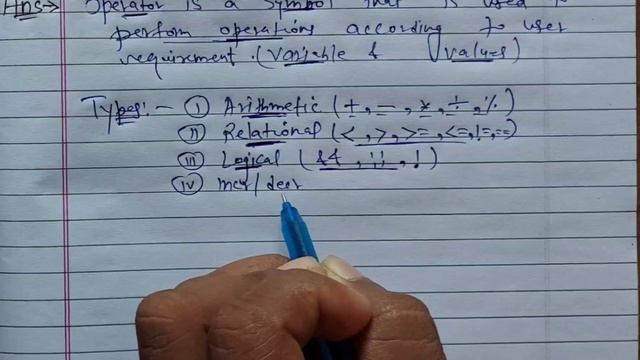 Ans→ Operator is a symbol that is used to
perform operations according to user
requirement. (variable & values)
Types:- (i) Arithmetic (+, -, *, ÷, %)
(ii) Relational (<, >, >=, <=, !=, ==)
(iii) Logical (&&, ||, !)
(iv) incr/decr